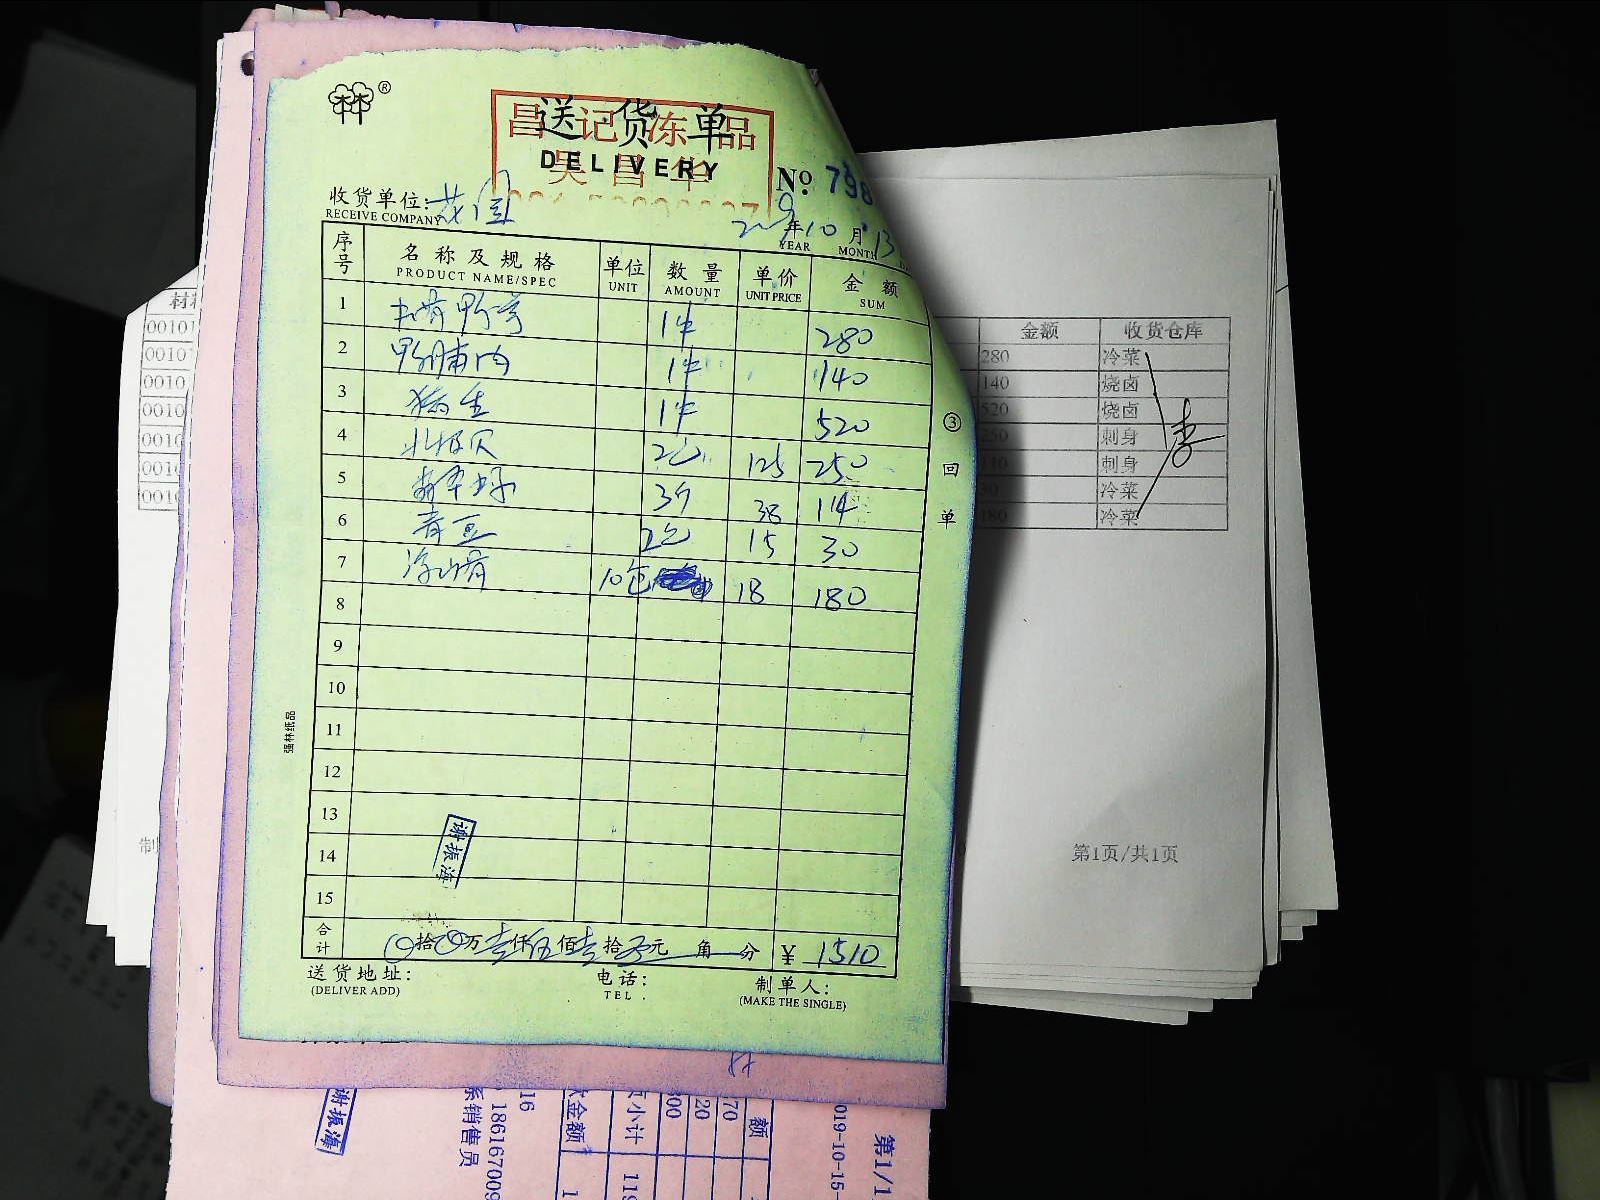 林®
昌记冻品
吴昌华
送货单
DELIVERY
№ 798
收货单位: 花园
RECEIVE COMPANY
2019年10月13
YEAR MONTH
序号 名称及规格 单位 数量 单价 金额
PRODUCT NAME/SPEC UNIT AMOUNT UNIT PRICE SUM
1 1件 280
2 鸭脯肉 1件 140
3 1件 520
4 北极贝 2包 125 250
5 38 114
6 青豆 2包 15 30
7 10包 18 180
8
9
10
11
12
13
14
15
谢振海
合计 拾 万壹仟伍佰壹拾 元 角 分 ¥ 1510
送货地址: 电话: 制单人:
(DELIVER ADD) TEL. (MAKE THE SINGLE)
③回单
强林纸品
材
0010
0010
0010
0010
0010
0010
0010
制
金额 收货仓库
280 冷菜
140 烧卤
520 烧卤
250 刺身
刺身
30 冷菜
180 冷菜
李
第1页/共1页
谢振海
系销售员
18616700
16
金额
小计 11
额
70
20
300
019-10-15-
第1/1